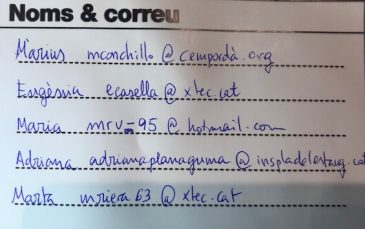 Noms & correu
Màrius mconchillo@cempordà.org
Eugènia ecasella@xtec.cat
Maria mrv_95@hotmail.com
Adriana adrianaplanaguma@inspladelestany.cat
Marta mriera63@xtec.cat